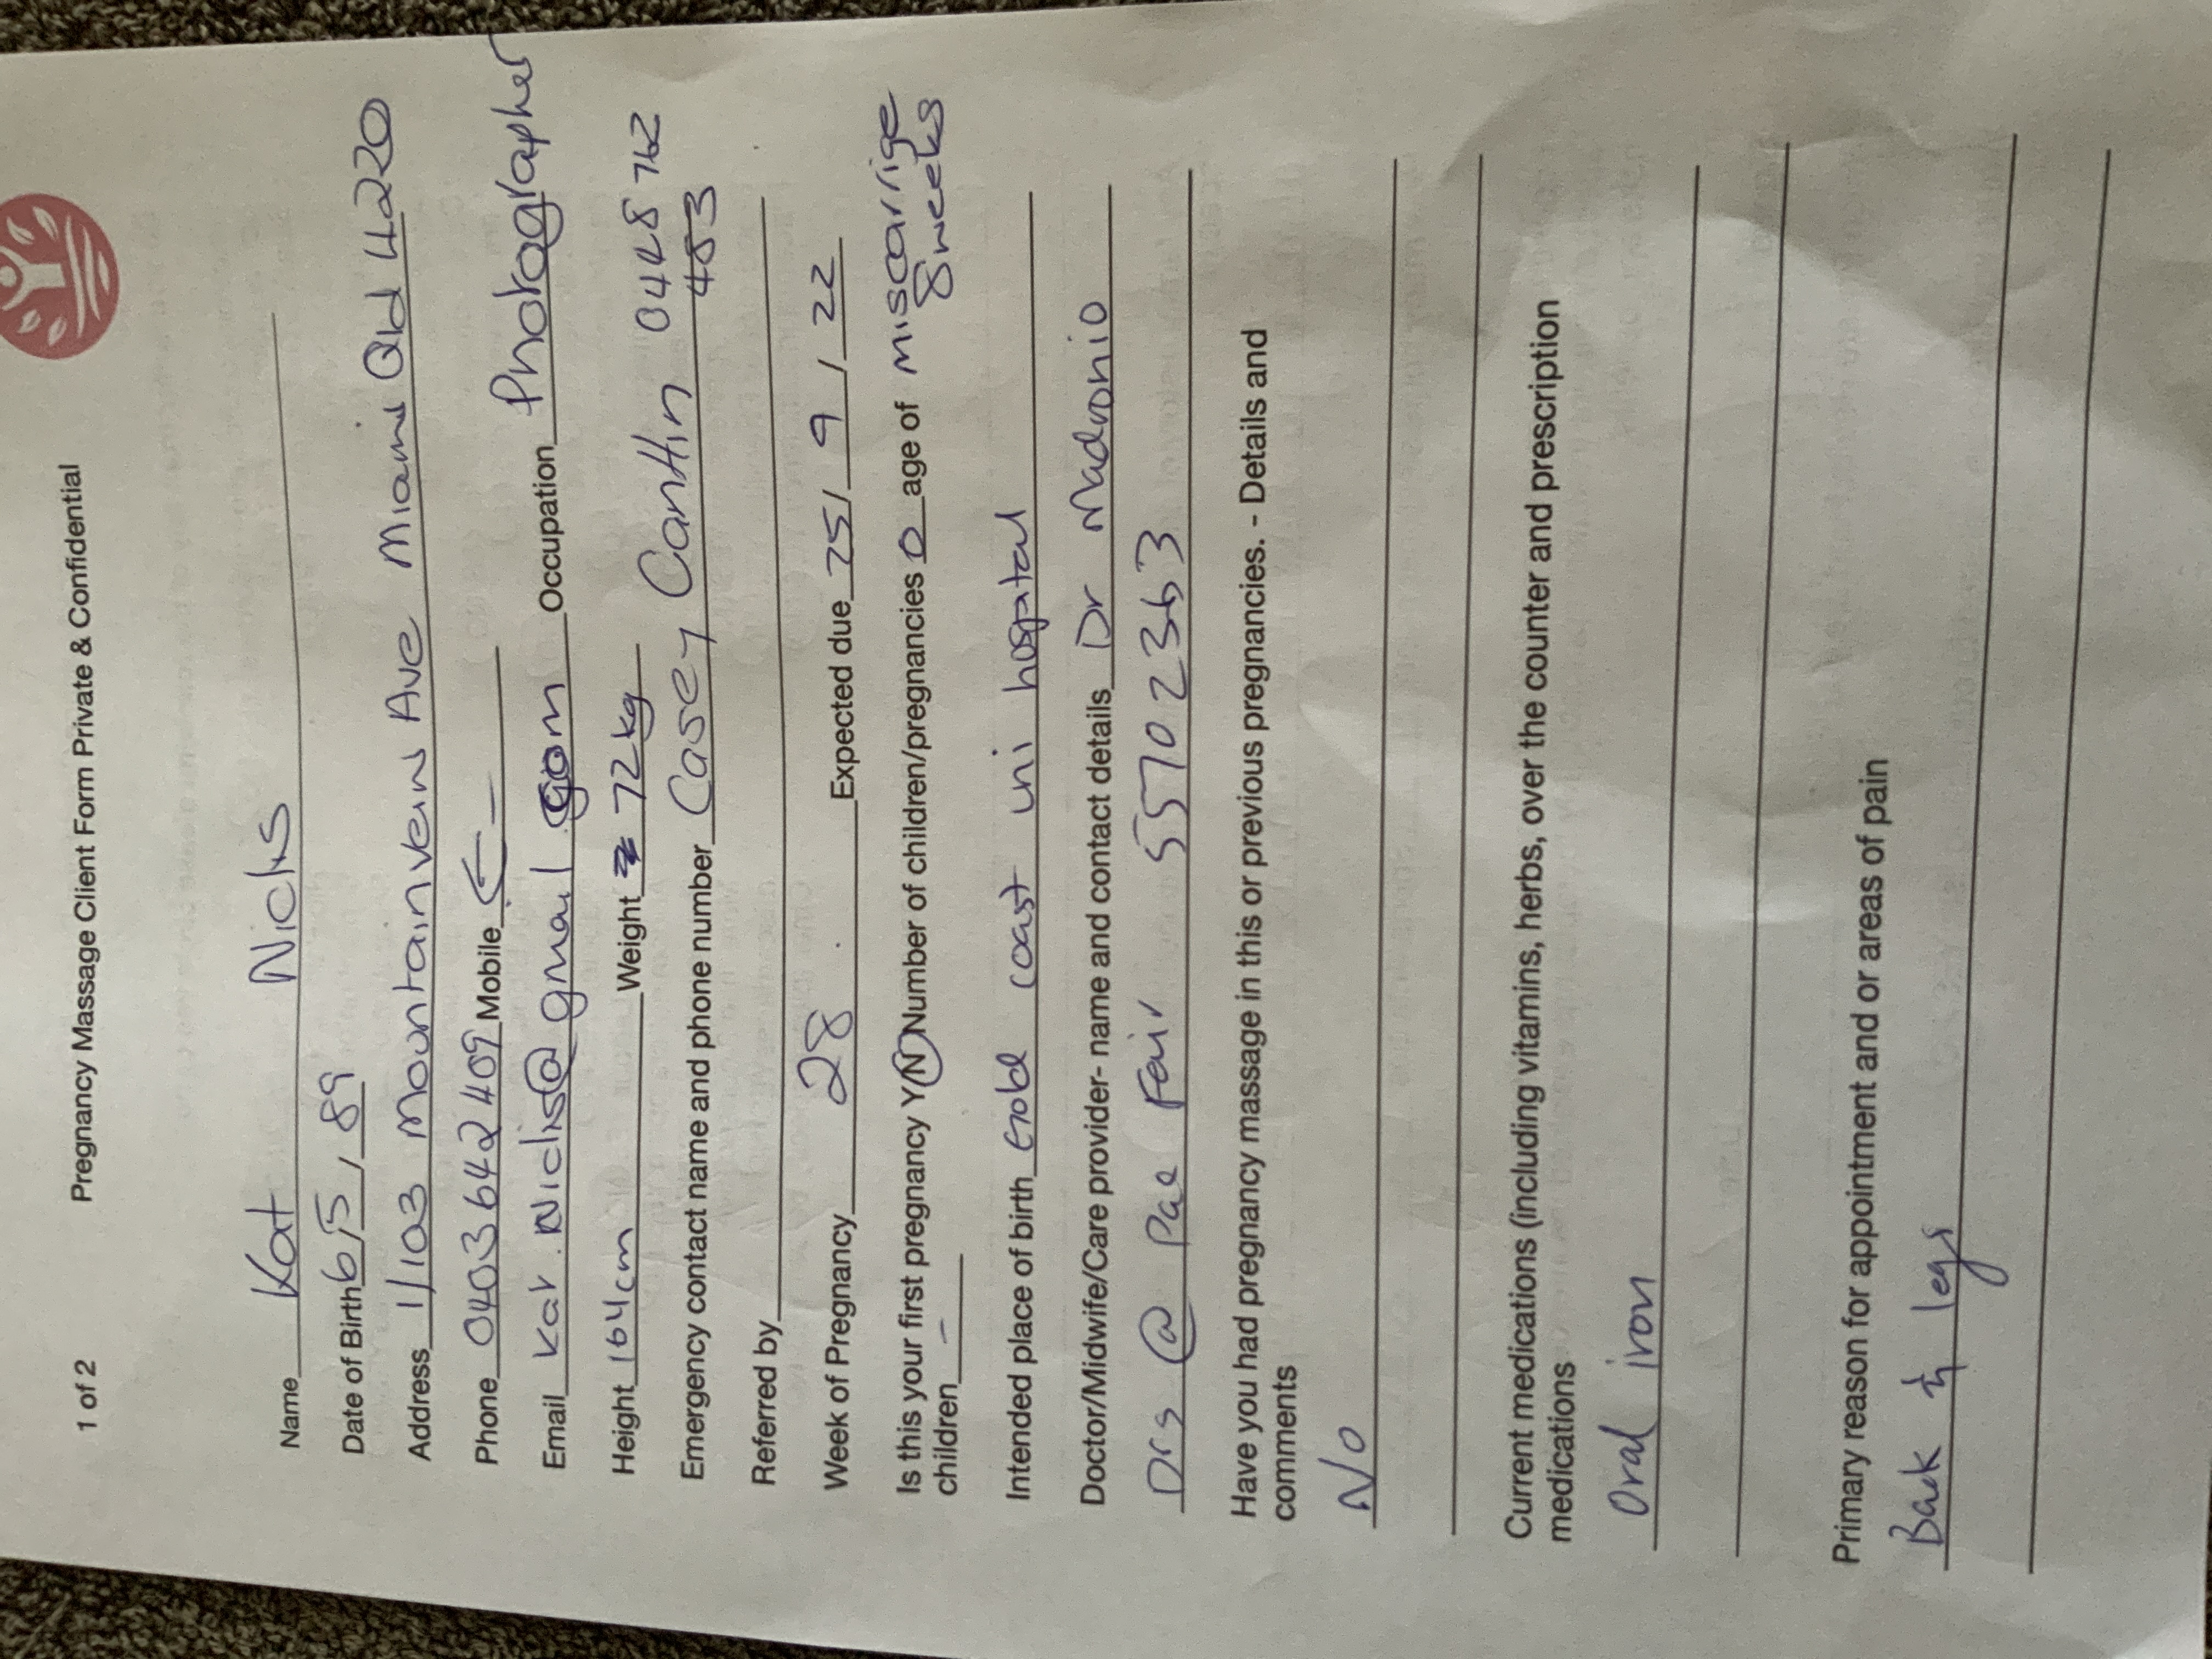 1 of 2 Pregnancy Massage Client Form Private & Confidential
Name Kat Nichs
Date of Birth 6/5/89
Address 1/103 Mountainveiw Ave Miami Qld 4220
Phone 0403642409 Mobile ←
Email Kat.Nichs@gmail.com Occupation Photographer
Height 164cm Weight 72kg
Emergency contact name and phone number Casey Canttin 0448 762
483
Referred by
Week of Pregnancy 28 Expected due 25/9/22
Is this your first pregnancy Y/N Number of children/pregnancies 0 age of miscarrige
children - 8 weeks
Intended place of birth Gold coast uni hospital
Doctor/Midwife/Care provider- name and contact details Dr Madronio
Drs @ Pac Fair 55702363
Have you had pregnancy massage in this or previous pregnancies. - Details and
comments
No
Current medications (including vitamins, herbs, over the counter and prescription
medications
Oral iron
Primary reason for appointment and or areas of pain
Back & legs